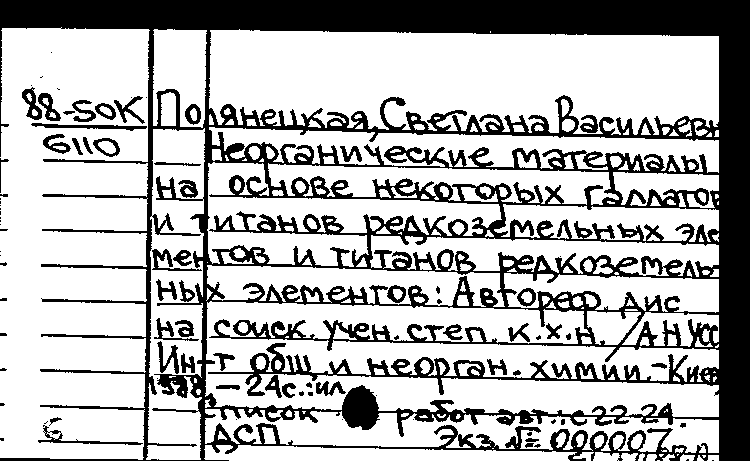 88-50К Полянецкая, Светлана Васильевн
6110 Неорганические материалы
на основе некоторых галлатов
и титанов редкоземельных эле
ментов и титанов редкоземель-
ных элементов: Автореф. дис.
на соиск. учен. степ. к.х.н. / АН УСС
Ин-т общ. и неорган. химии. - Киев
1988 - 24с.: ил.
Список работ авт.: с 22-24.
6 ДСП. Экз. № 000007